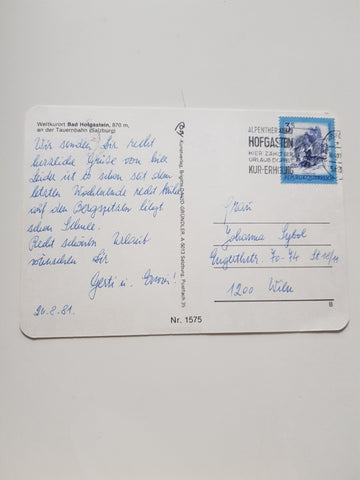 Weltkurort Bad Hofgastein, 870 m,
an der Tauernbahn (Salzburg)
Wir senden Dir recht
herzliche Grüße von hier
Leider ist es schon seit dem
letzten Wochenende recht
auf den Bergspitzen liegt
schon Schnee.
Recht schönen Urlaub
wünschen Dir
Gerti u.
20.8.81.
Kunstverlag, Bigelith GRUNDLER A 5013 Salzburg, Postfach 31
Nr. 1575
ALPENTHERMALBAD
HOFGASTEIN
HIER ZÄHLT DER
URLAUB DOPPELT
KUR-ERHOLUNG
3 S
REPUBLIK ÖSTERREICH
Frau
Johanna Sybol
70-74 St 10/11
1200 Wien
B